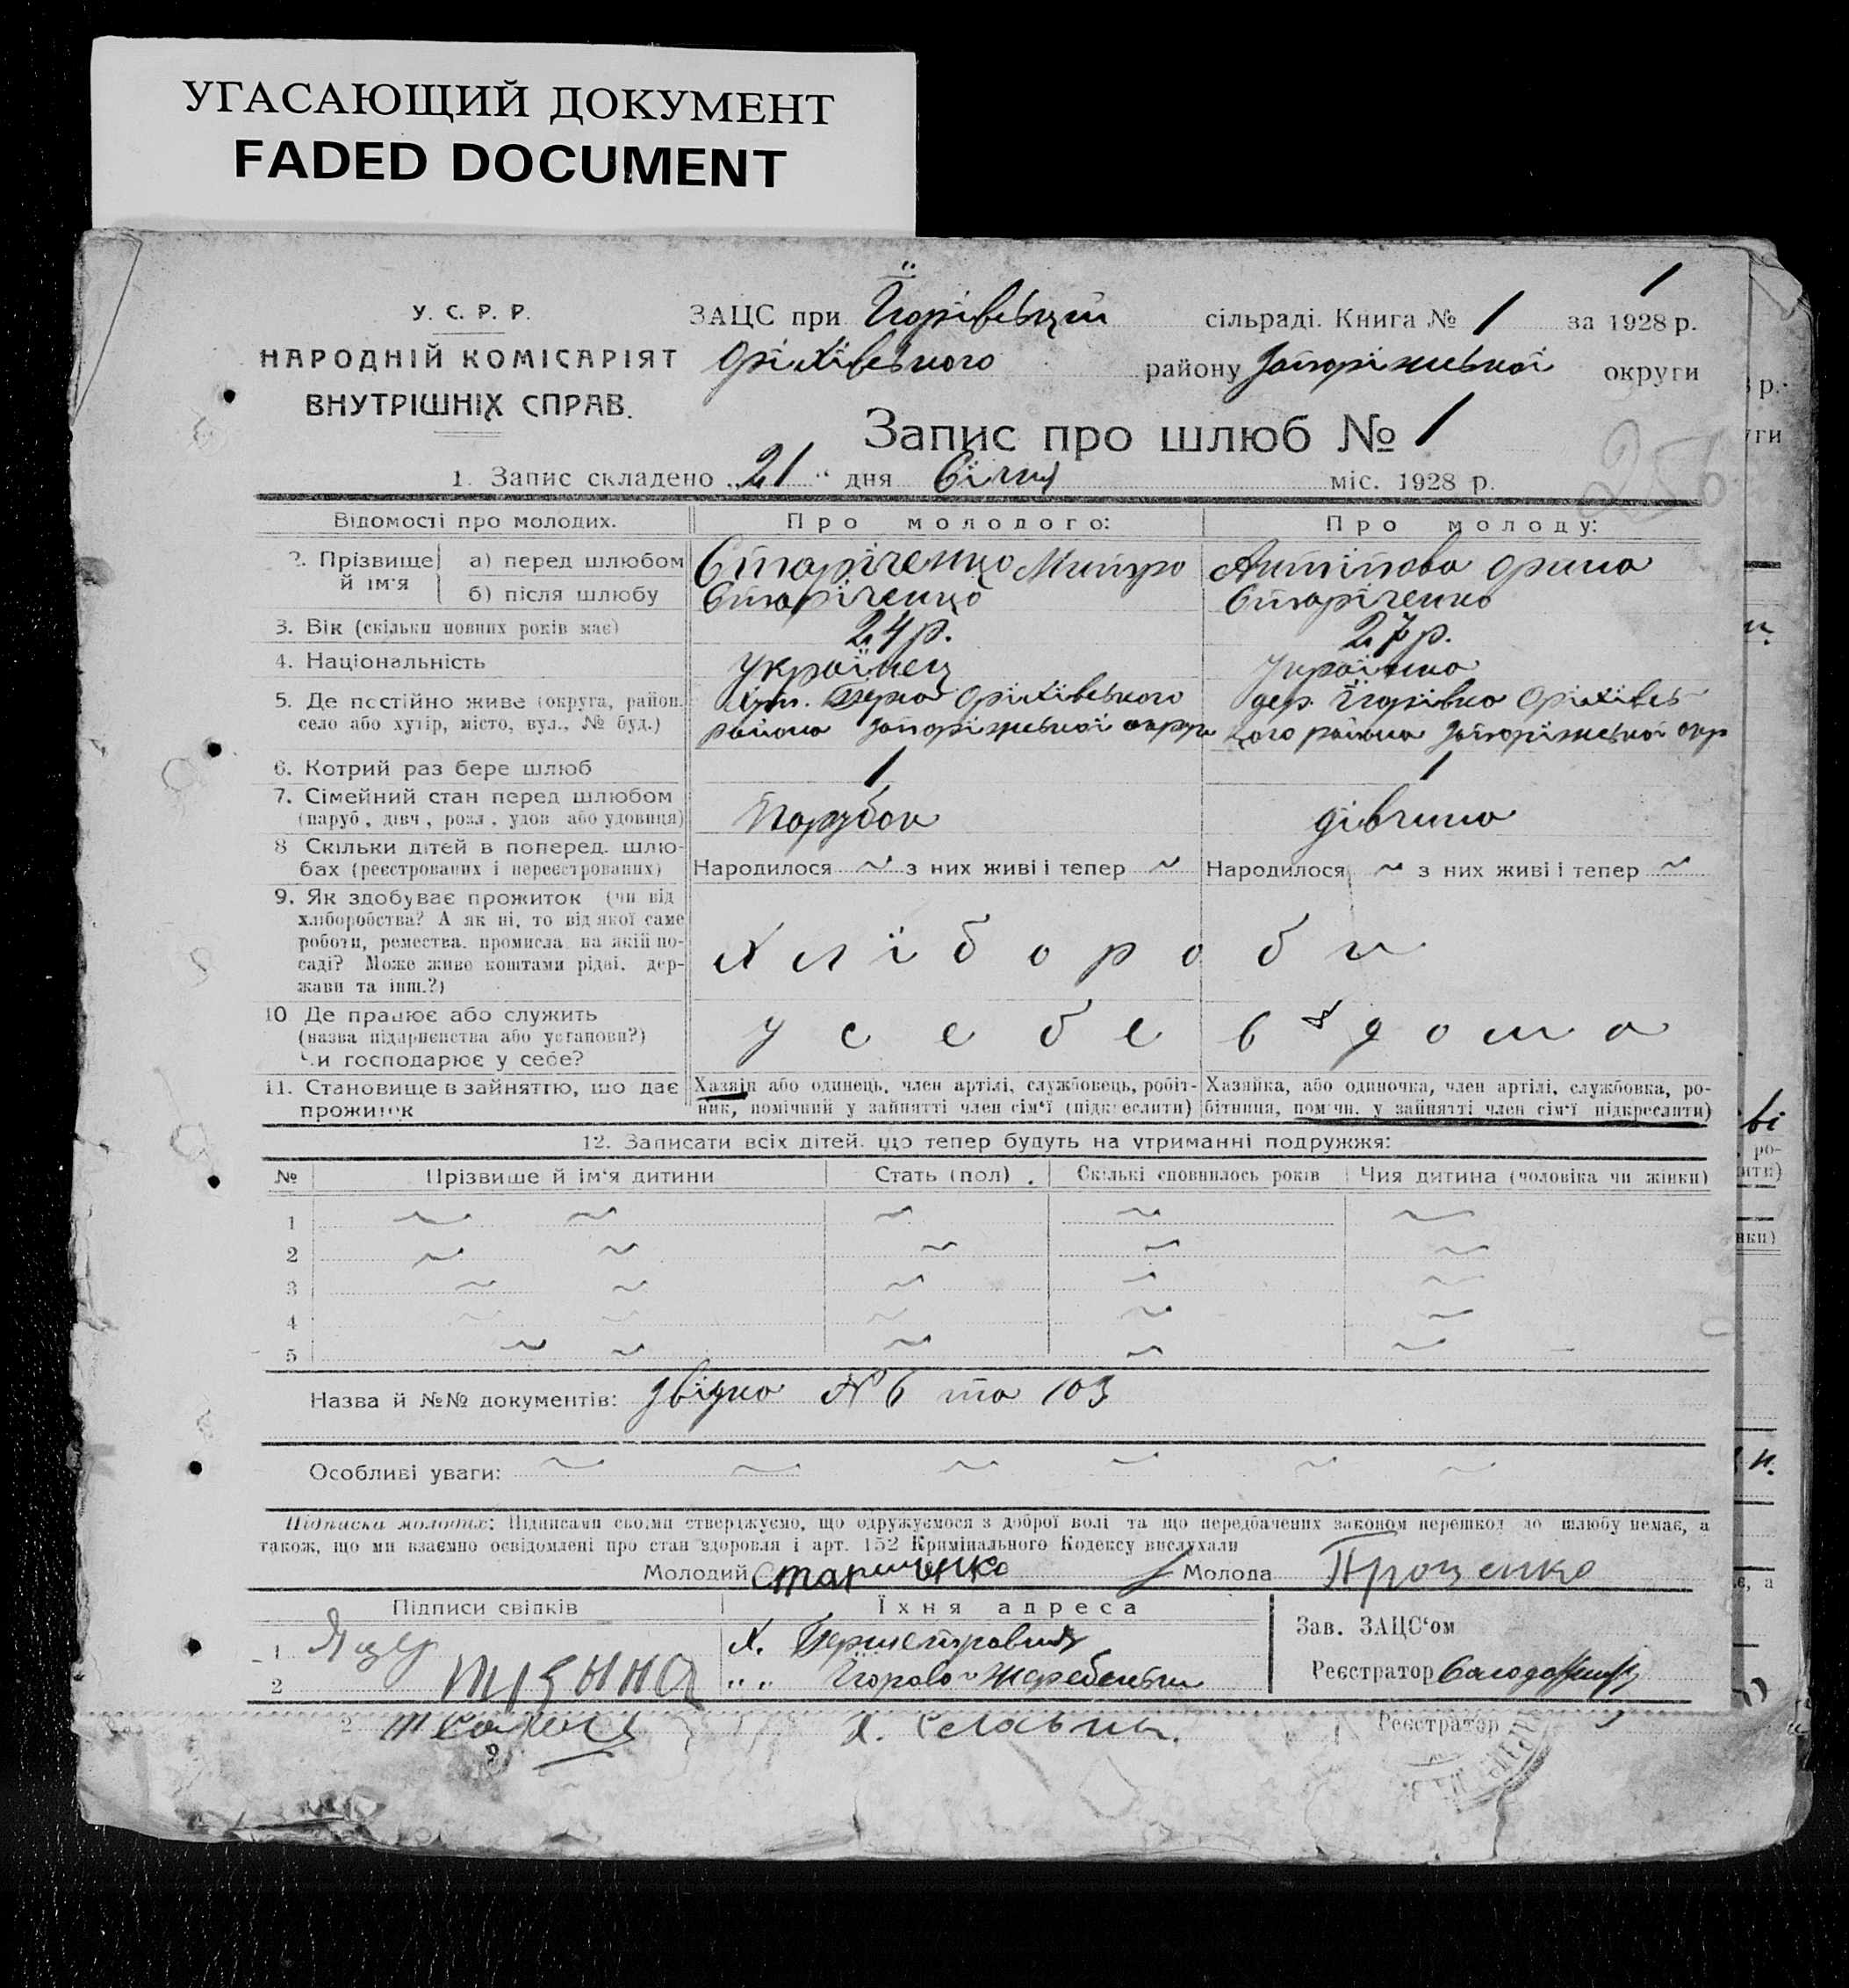 УГАСАЮЩИЙ ДОКУМЕНТ
FADED DOCUMENT
1
У. С. Р. Р.
НАРОДНІЙ КОМІСАРІЯТ
ВНУТРІШНІХ СПРАВ.
ЗАЦС при Їгорівській сільраді. Книга № 1 за 1928 р.
Оріхівського району Запоріжської округи
Запис про шлюб № 1
1. Запис складено „21“ дня Січня міс. 1928 р.
Відомості про молодих. Про молодого: Про молоду:
2. Прізвище й ім'я а) перед шлюбом Старіченко Митро Антіпова Орина
б) після шлюбу Старіченко Старіченко
3. Вік (скільки повних років має) 24 р. 27 р.
4. Національність Українец Українка
5. Де постійно живе (округа, район, Хут. Оріхівського дер. Їгорівка Оріхівсь
село або хутір, місто, вул., № буд.) района Запоріжської округи кого района Запоріжської окр
6. Котрий раз бере шлюб 1 1
7. Сімейний стан перед шлюбом Парубок дівчина
(паруб., дівч., розл., удов. або удовиця)
8 Скільки дітей в поперед. шлю-
бах (реєстрованих і нереєстрованих) Народилося ~ з них живі і тепер ~ Народилося ~ з них живі і тепер ~
9. Як здобуває прожиток (чи від
хліборобства? А як ні, то від якої саме
роботи, ремества, промисла, на якій по- Хлїбороби
саді? Може живе коштами рідні, дер-
жави та інш.?)
10 Де працює або служить у себе в дома
(назва підприємства або установи?)
Чи господарює у себе?
11. Становище в зайняттю, що дає Хазяїн або одинець, член артілі, службовець, робіт- Хазяйка, або одиночка, член артілі, службовка, ро-
прожиток ник, помічний у зайнятті член сім'ї (підкреслити) бітниця, помічн. у зайнятті член сім'ї підкреслити)
12. Записати всіх дітей, що тепер будуть на утриманні подружжя:
№ Прізвище й ім'я дитини Стать (пол) Скількі сповнилось років Чия дитина (чоловіка чи жінки)
1 ~ ~ ~ ~ ~
2 ~ ~ ~ ~ ~
3 ~ ~ ~ ~ ~
4 ~ ~ ~ ~ ~
5 ~ ~ ~ ~ ~
Назва й №№ документів: звідка № 6 та 103
Особливі уваги: ~ ~ ~ ~ ~ ~
Підписка молодих: Підписами своїми стверджуємо, що одружуємося з доброї волі та що передбачених законом перешкод до шлюбу немає, а
також, що ми взаємно освідомлені про стан здоровля і арт. 152 Кримінального Кодексу вислухали
Молодий Стариченко Молода Проценко
Підписи свідків Їхня адреса
Зав. ЗАЦС'ом
1 Х.
2 „ „ Їгорово-Жеребецьки Реєстратор
2 Реєстратор